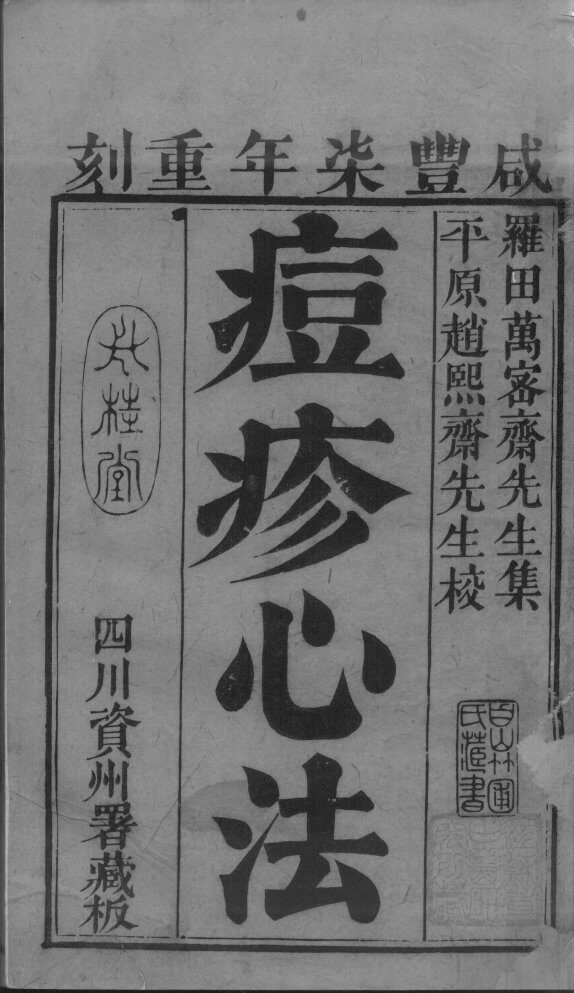 咸豐柒年重刻
羅田萬密齋先生集
平原趙熙齋先生校
痘疹心法
桂堂
四川資州署藏板
氏藏書